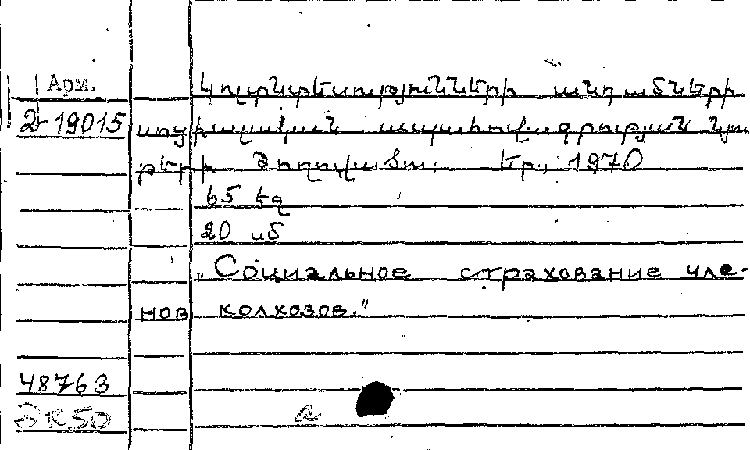 Арм.
2-19015
Կոլտնտեսությունների անդամների
սոցիալական ապահովագրության նյու-
թերի ժողովածու. Եր., 1970
65 էջ
20 սմ
„Социальное страхование чле-
нов колхозов."
48763
ЭК50 а